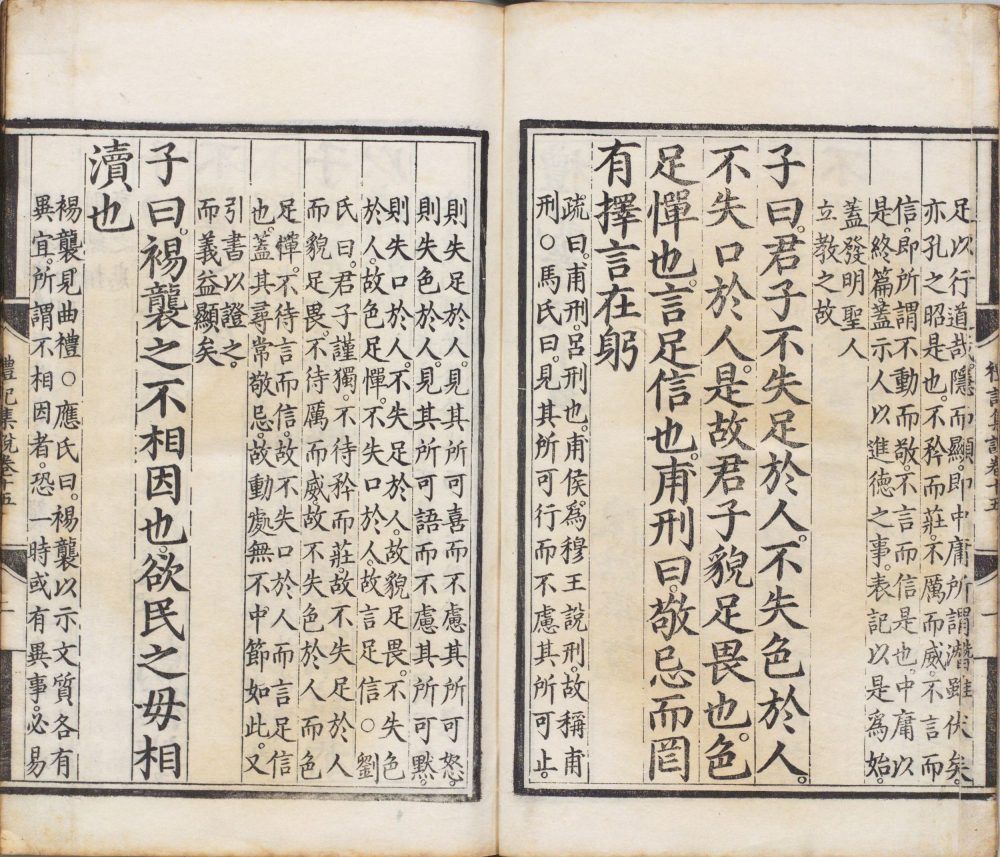 足以行道哉。隱而顯。即中庸所謂潛雖伏矣。
亦孔之昭是也。不矜而莊。不厲而威。不言而
信。即所謂不動而敬。不言而信是也。中庸以
是終篇。蓋示人以進德之事。表記以是爲始。
蓋發明聖人
立教之故
子曰。君子不失足於人。不失色於人。
不失口於人。是故君子貌足畏也。色
足憚也。言足信也。甫刑曰。敬忌而罔
有擇言在躬
疏曰。甫刑。呂刑也。甫侯。爲穆王說刑。故稱甫
刑。○馬氏曰。見其所可行而不慮其所可止。
則失足於人。見其所可喜而不慮其所可怒。
則失色於人。見其所可語而不慮其所可黙。
則失口於人。不失足於人。故貌足畏。不失色
於人。故色足憚。不失口於人。故言足信。○劉
氏曰。君子謹獨。不待矜而莊。故不失足於人
而貌足畏。不待厲而威。故不失色於人而色
足憚。不待言而信。故不失口於人而言足信
也。蓋其尋常敬忌。故動處無不中節如此。又
引書以證之。
而義益顯矣
子曰。裼襲之不相因也。欲民之毋相
瀆也
裼襲。見曲禮。○應氏曰。裼襲以示文質各有
異宜。所謂不相因者。恐一時或有異事。必易
禮記集說卷十五